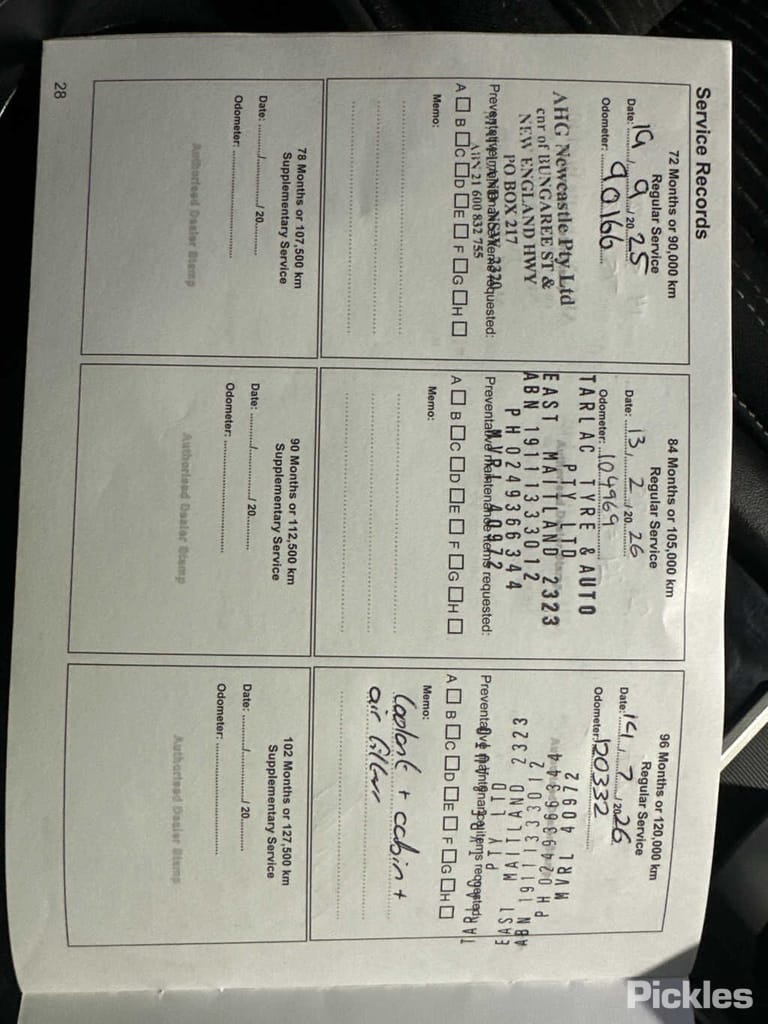 Service Records
72 Months or 90,000 km
Regular Service
Date: 19 / 9 / 20 25
Odometer: 90166
AHG Newcastle Pty Ltd
cnr of BUNGAREE ST &
NEW ENGLAND HWY
PO BOX 217
NSW 2320
ABN 21 600 832 755
Preventative maintenance items requested:
A B C D E F G H
Memo:
84 Months or 105,000 km
Regular Service
Date: 13 / 2 / 20 26
Odometer: 104969
TARLAC TYRE & AUTO
PTY LTD
EAST MAITLAND 2323
ABN 19111333012
PH 0249366344
MVRL 40972
Preventative maintenance items requested:
A B C D E F G H
Memo:
96 Months or 120,000 km
Regular Service
Date: 14 / 7 / 20 26
Odometer: 120332
MVRL 40972
PH 0249366344
ABN 19111333012
EAST MAITLAND 2323
PTY LTD
Preventative maintenance items requested:
A B C D E F G H
Memo:
Coolant + cabin +
air filter
78 Months or 107,500 km
Supplementary Service
Date: ........./........./ 20.........
Odometer: .........
Authorised Dealer Stamp
90 Months or 112,500 km
Supplementary Service
Date: ........./........./ 20.........
Odometer: .........
Authorised Dealer Stamp
102 Months or 127,500 km
Supplementary Service
Date: ........./........./ 20.........
Odometer: .........
Authorised Dealer Stamp
28
Pickles